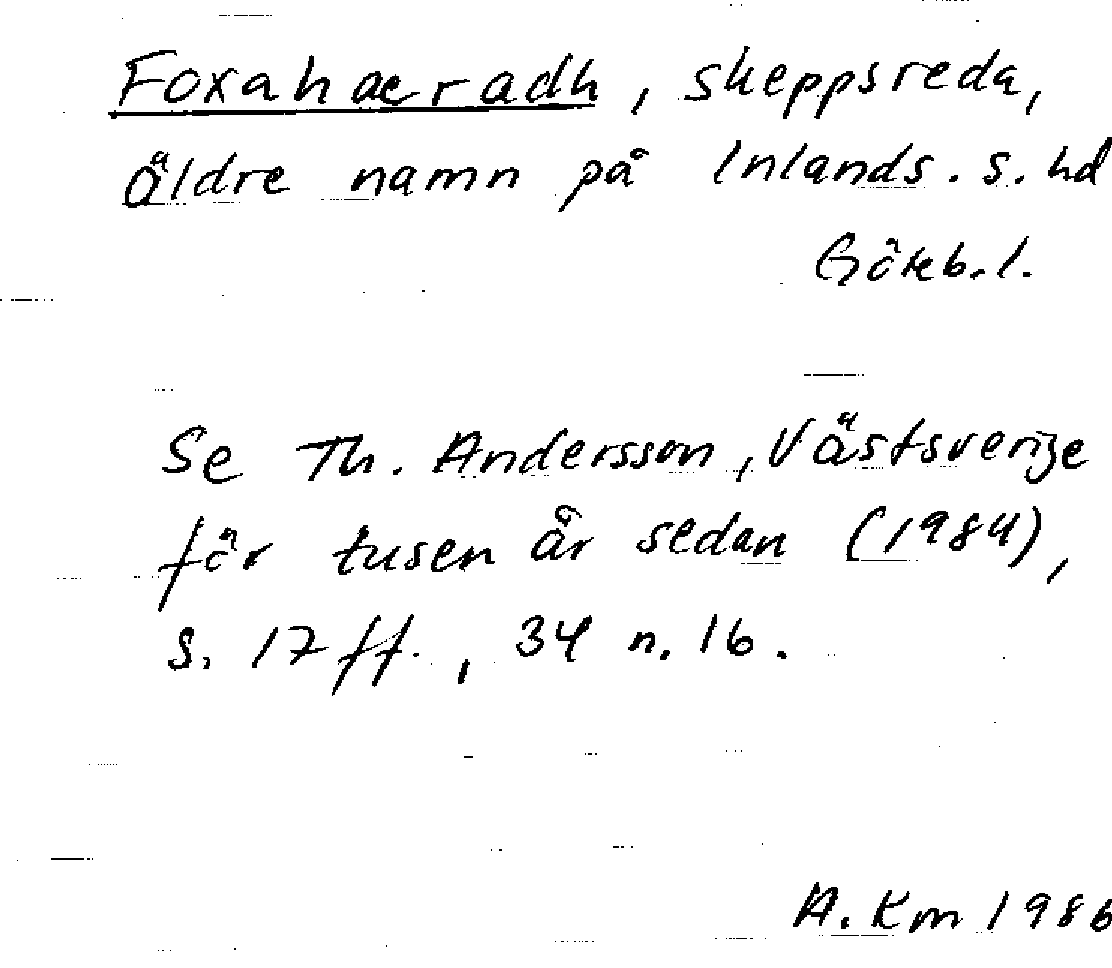 Foxahaeradh, skeppsreda,
äldre namn på Inlands. s. hd
Göteb. l.
Se Th. Andersson, Västsverige
för tusen år sedan (1984),
s. 17 ff., 34 n. 16.
A. Km 1986